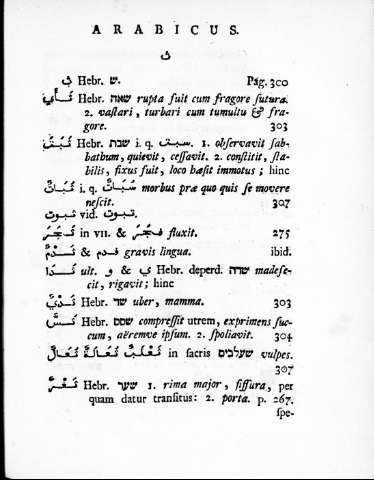 ARABICUS.
ث
ث Hebr. ש. Pag. 300
ثَأَي Hebr. שאה rupta fuit cum fragore sutura.
2. vastari, turbari cum tumultu & fra-
gore. 303
Hebr. שבת i. q. سبت. 1. observavit sab-
bathum, quievit, cessavit. 2. constitit, sta-
bilis, fixus fuit, loco hæsit immotus; hinc
ثُبَاتٌ i. q. سُبَاتٌ morbus præ quo quis se movere
nescit. 307
ثبوت vid. تبوت.
ثَجَرَ in VII. & فَجَرَ fluxit. 275
ثَدْمٌ & فدم gravis lingua. ibid.
ثَدَا ult. و & ي Hebr. deperd. שדה madefe-
cit, rigavit; hinc
ثَدْيٌ Hebr. שד uber, mamma. 303
Hebr. שסס compressit utrem, exprimens suc-
cum, aëremve ipsum. 2. spoliavit. 304
ثَعْلَبٌ ثُعَالَةٌ ثُعَالٌ in sacris שעלבים vulpes.
307
ثَغْرٌ Hebr. שער 1. rima major, fissura, per
quam datur transitus: 2. porta. p. 267.
spe-